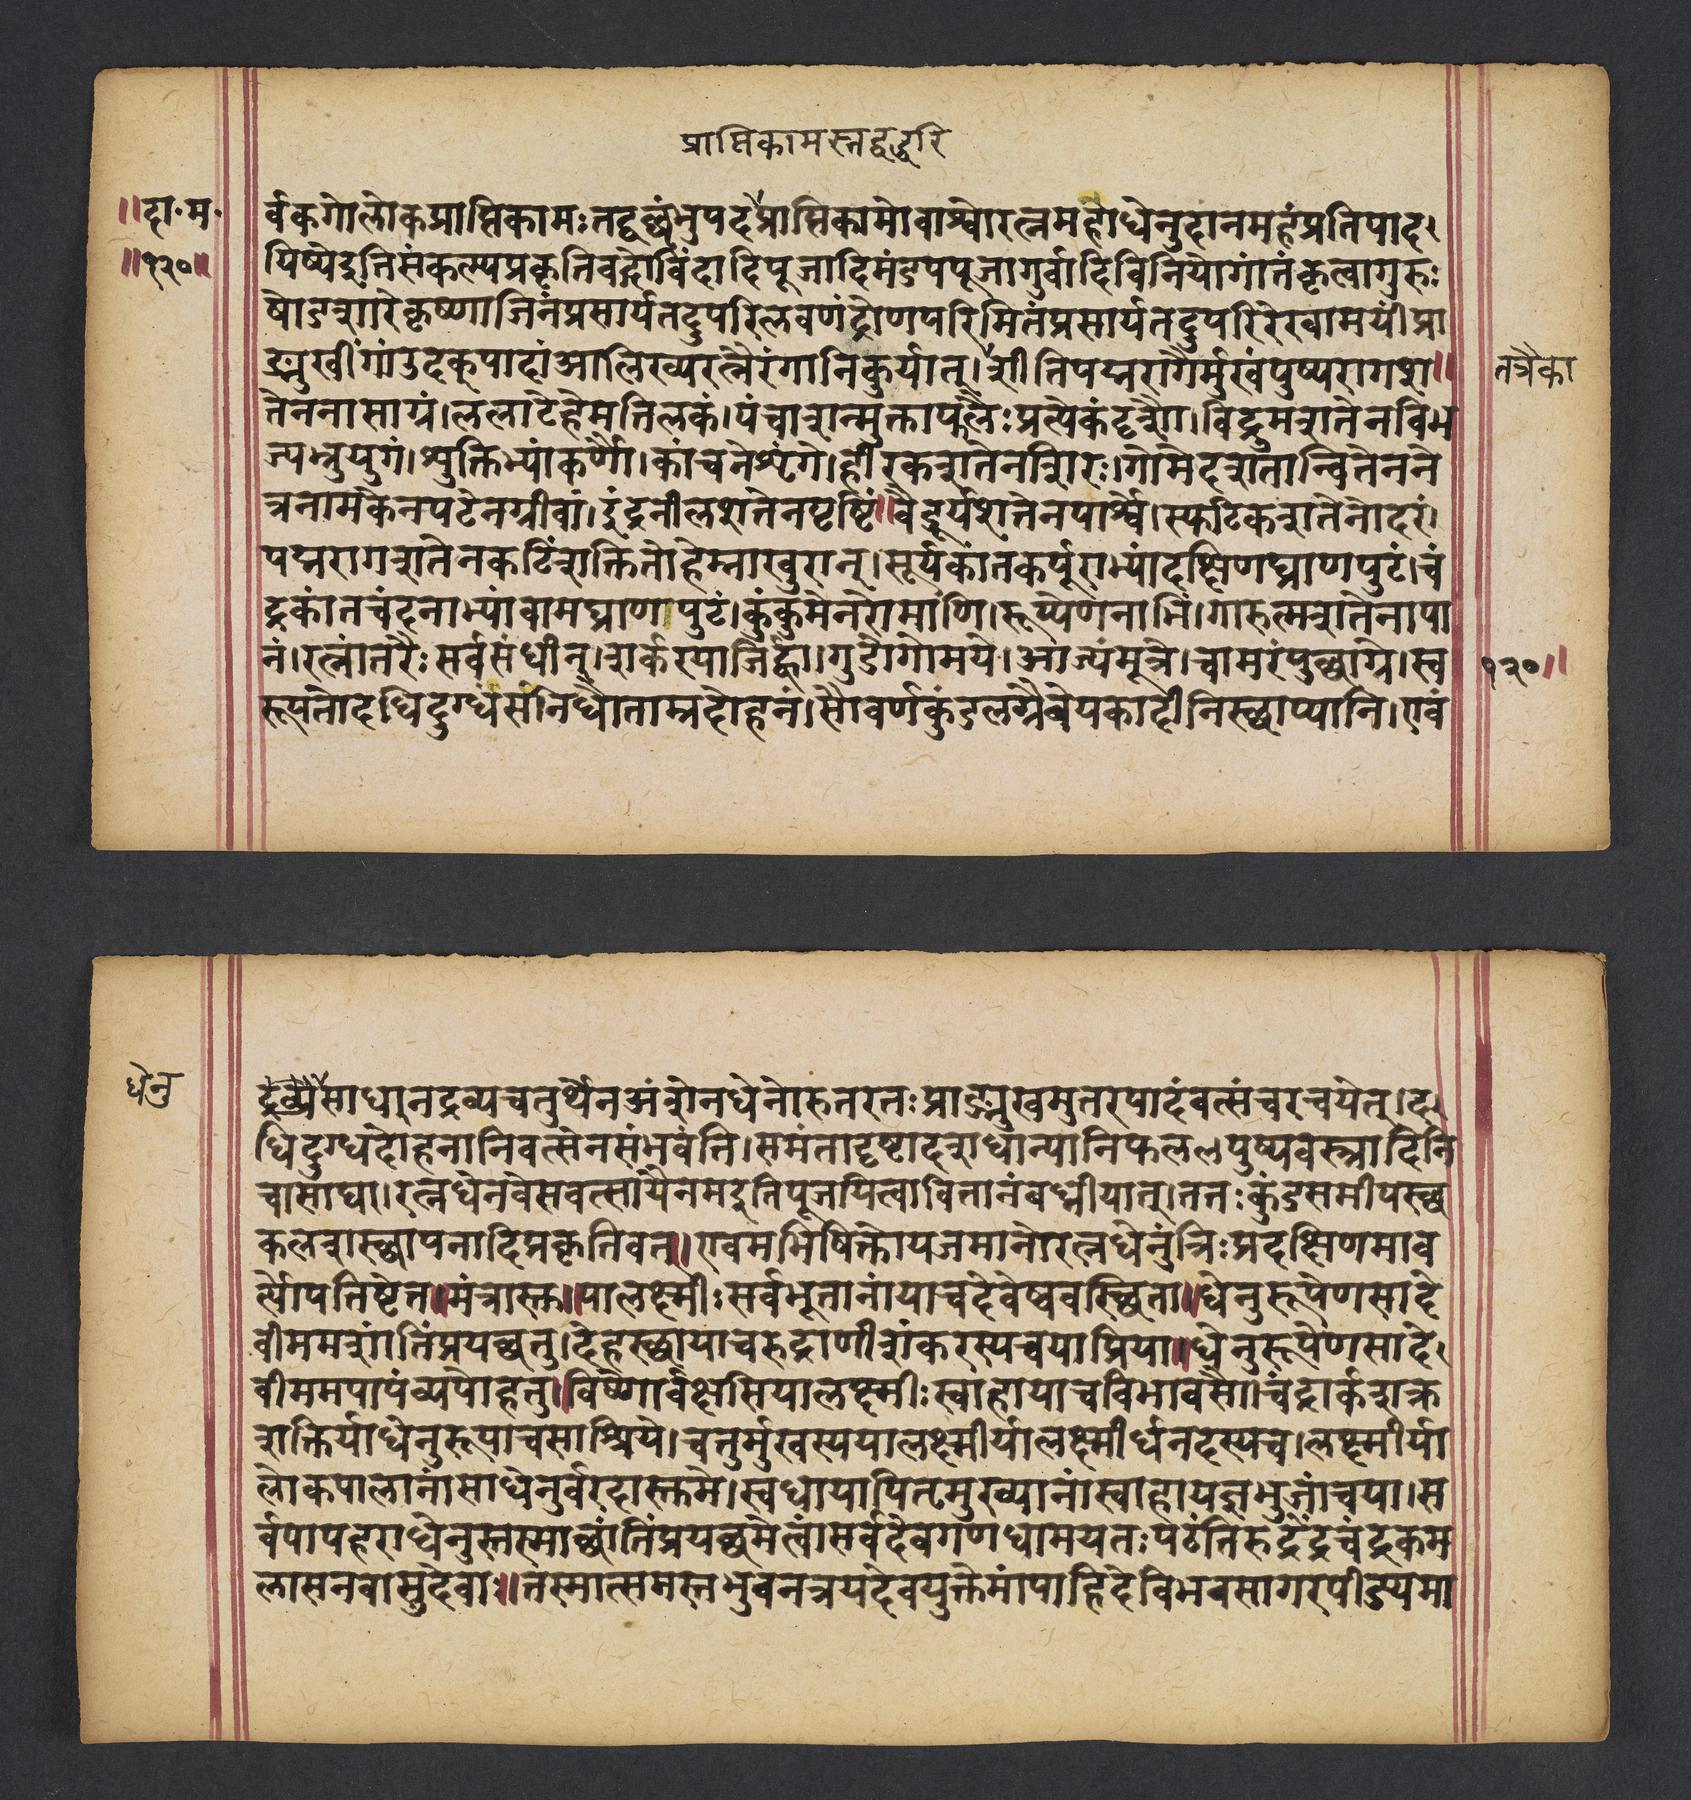 प्राप्तिकामस्तद्वद्धरि
॥दा॰म॰ र्वकगोलोकप्राप्तिकामः तद्वल्छंभुपदप्राप्तिकामोवाश्वोरत्नमहाधेनुदानमहंप्रतिपाद
॥१२०॥ यिष्येइतिसंकल्प्यप्रकृतिवद्गोविंदादिपूजादिमंडपपूजागुर्वादिविनियोगांतंकृत्वागुरुः
षोडशारेकृष्णाजिनंप्रसार्यतदुपरिलवणंद्रोणपरिमितंप्रसार्यतदुपरिरेखामयींप्रा
ङ्मुखींगांउदक्पादांआलिख्यरत्नैरंगानिकुर्यात्।शीतिपद्मरागैर्मुखंपुष्परागश॥ तत्रैका
तेननासाग्रं।ललाटेहेमतिलकं।पंचाशन्मुक्ताफलैःप्रत्येकंदृशौ।विद्रुमशतेनविभ
ज्यभ्रुयुगं।शुक्तिभ्यांकर्णौ।कांचनेशृंगे।हीरकशतेनशिरः।गोमेदशतान्वितेनने
त्रनामकेनपटेनग्रीवां।इंद्रनीलशतेनपृष्टिं॥वैडूर्यशतेनपार्श्वे।स्फटिकशतेनोदरं।
पद्मरागशतेनकटिंशक्तितोहेम्नाखुरान्।सूर्यकांतकर्पूराभ्यांदक्षिणघ्राणपुटं।चं
द्रकांतचंदनाभ्यांवामघ्राणपुटं।कुंकुमेनरोमाणि।रूप्येणनाभिं।गारुत्मशतेनापा
नं।रत्नांतरैःसर्वसंधीन्।शर्करयाजिह्वां।गुडेगोमये।आज्यंमूत्रे।चामरंपुछाग्रे।स्व १२०॥
रूपतोदधिदुग्धंसंनिधौताम्रदोहनं।सौवर्णकुंडलग्रैवेयकादीनिस्थाप्यानि।एवं
धेनु
द्रव्यैसाधानद्रव्यचतुर्थेनअंशेनधेनोरुतरतःप्राङ्मुखमुतरपादंवत्संचरचयेत्।द
धिदुग्धदोहनानिवत्सेनसंभवंति।समंतादृष्टादशधान्यानिफललपुष्पवस्त्रादिनि
चासाद्या।रत्नधेनवेसवत्सायैनमइतिपूजयित्वावितानंबध्नीयात्।ततःकुंडसमीपस्थ
कलशस्थापनादिप्रकृतिवत्॥एवमभिषिक्तोयजमानोरत्नधेनुंत्रिःप्रदक्षिणमाव
र्त्योपतिष्टेत॥मंत्रास्तु॥यालक्ष्मीःसर्वभूतानांयाचदेवेष्ववस्थिता॥धेनुरूपेणसादे
वीममशांतिंप्रयछतु।देहस्थायाचरुद्राणीशंकरस्यचयाप्रिया॥धेनुरूपेणसादे
वीममपापंव्यपोहतु॥विष्णोर्वक्षसियालक्ष्मीःस्वाहायाचविभावसौ।चंद्रार्कशक्र
शक्तिर्याधेनुरूपाचसाश्रिये।चतुर्मुखस्ययालक्ष्मीर्यालक्ष्मीर्धनदस्यच।लक्ष्मीर्या
लोकपालानांसाधेनुर्वरदास्तुमे।स्वधायापितृमुख्यानांस्वाहायज्ञभुजांचया।स
र्वपापहराधेनुस्तस्माछांतिंप्रयछमेत्वांसर्वदेवगणधामयतःपठंतिरुद्रेंद्रचंद्रकम
लासनवासुदेवाः॥तस्मात्समस्तभुवनत्रयदेवयुक्तेमांपाहिदेविभवसागरपीड्यमा